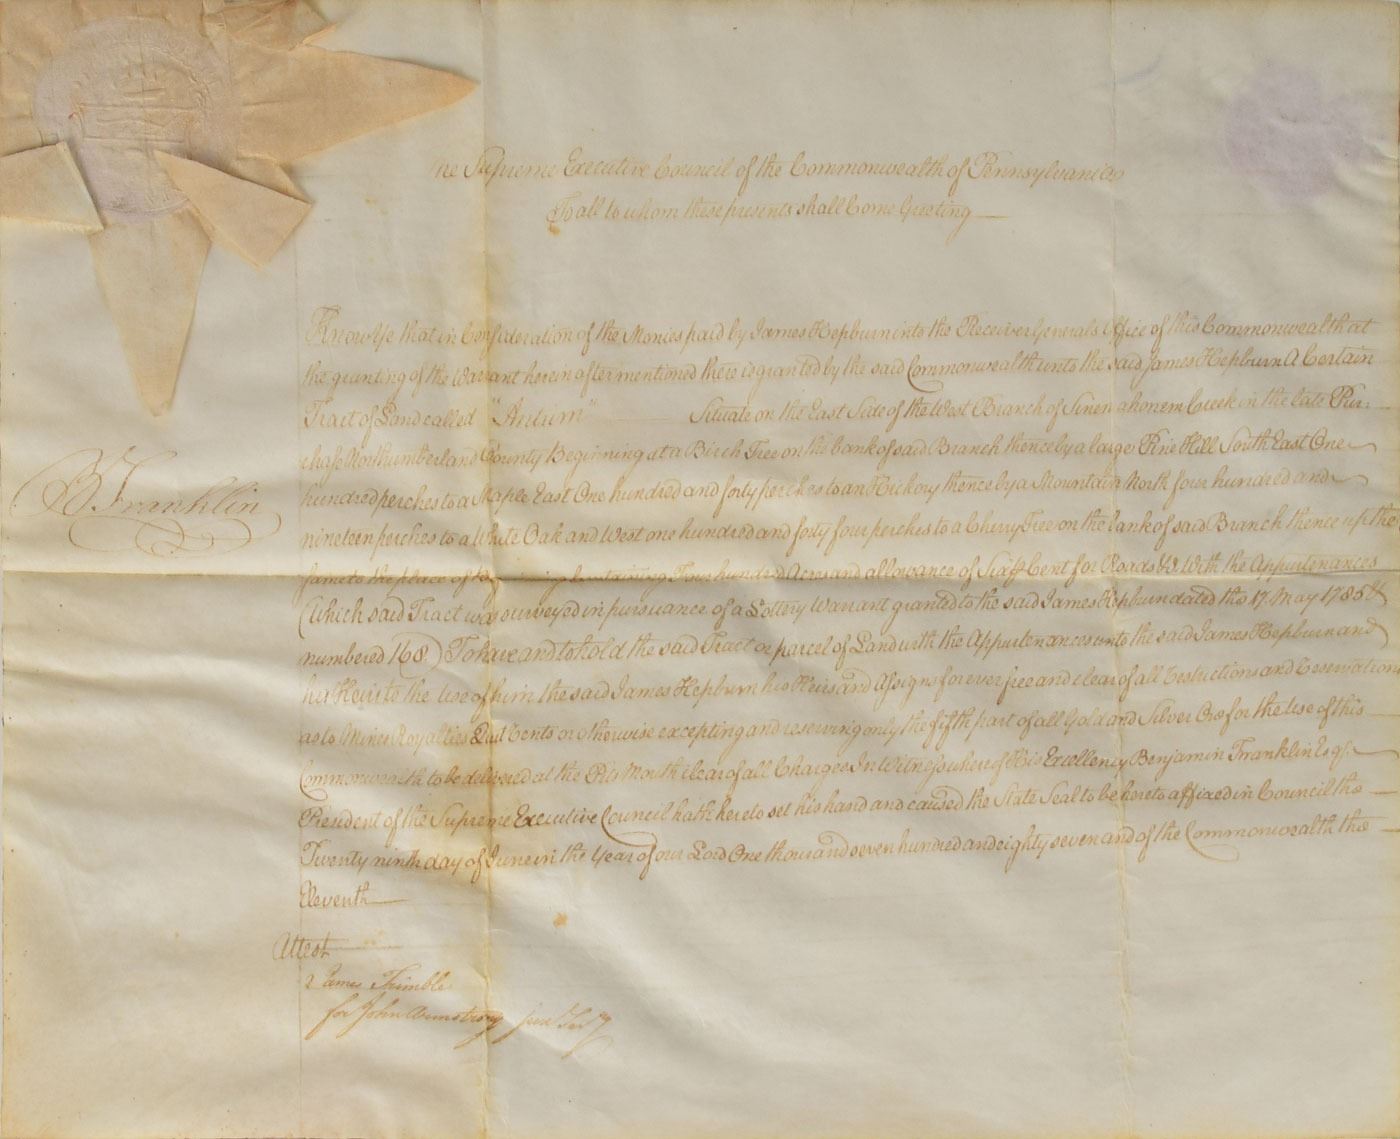 The Supreme Executive Council of the Commonwealth of Pennsylvania
To all to whom these presents shall Come Greeting
Know Ye that in Consideration of the Monies paid by James Hepburn into the Receiver Generals Office of this Commonwealth at
the granting of the Warrant herein after mentioned there is granted by the said Commonwealth unto the said James Hepburn A Certain
Tract of Land called "Antium" Situate on the East Side of the West Branch of Sinemahonem Creek in the late Pur-
chase Northumberland County Beginning at a Birch Tree on the bank of said Branch thence by a large Pine Hill South East One
hundred perches to a Maple East One hundred and forty perches to an Hickory thence by a Mountain North four hundred and
nineteen perches to a White Oak and West one hundred and forty four perches to a Cherry Tree on the bank of said Branch thence up the
same to the place of Beginning Containing Four hundred Acres and allowance of Six P Cent for Roads &c. With the Appurtenances
(Which said Tract was surveyed in pursuance of a Lottery Warrant granted to the said James Hepburn dated the 17. May 1785 &
numbered 168.) To have and to hold the said Tract or parcel of Land with the Appurtenances unto the said James Hepburn and
his Heirs to the use of him the said James Hepburn his Heirs and Assigns forever free and clear of all Restrictions and Reservations
as to Mines Royalties Quit Rents or otherwise excepting and reserving only the fifth part of all Gold and Silver Ore for the use of this
Commonwealth to be delivered at the Pits Mouth clear of all Charges In Witness whereof His Excellency Benjamin Franklin Esqr.
President of the Supreme Executive Council hath hereto set his hand and caused the State Seal to be hereto affixed in Council the
Twenty ninth day of June in the Year of our Lord One thousand seven hundred and eighty seven and of the Commonwealth the
Eleventh
B Franklin
Attest
James Trimble
for John Armstrong junr Secy